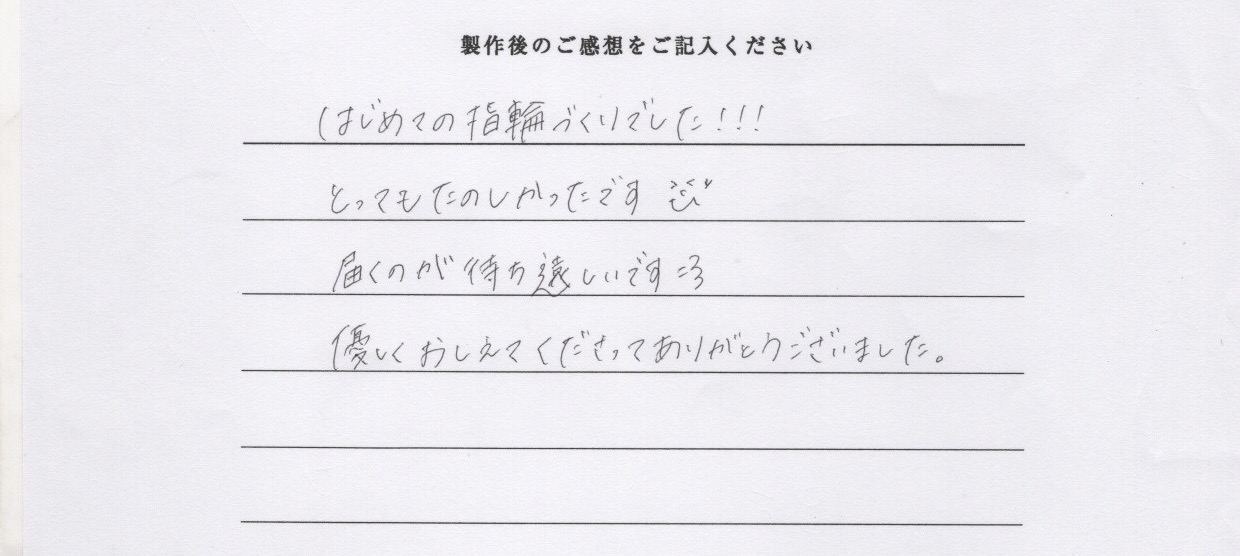 製作後のご感想をご記入ください
はじめての指輪づくりでした!!!
とってもたのしかったです
届くのが待ち遠しいです :3
優しくおしえてくださってありがとうございました。